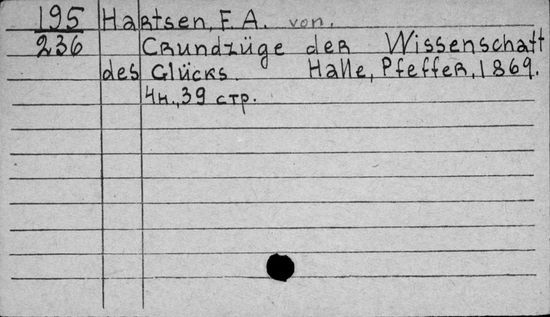 195 Hartsen, F. A. von.
236 Grundzüge der Wissenschaft
des Glücks. Halle, Pfeffer, 1869.
4н., 39 стр.